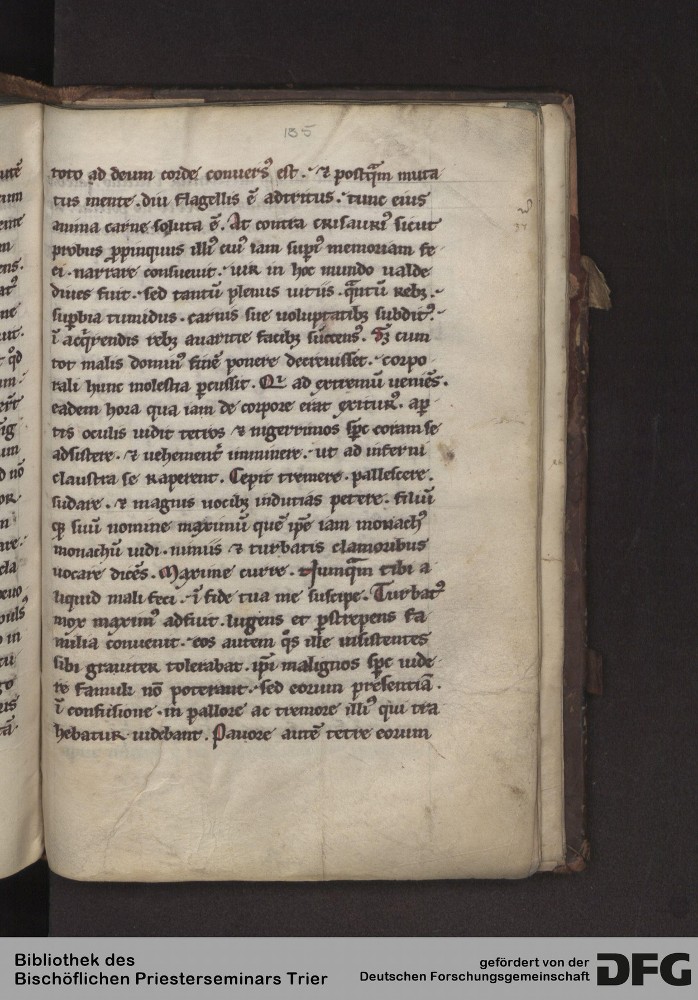 135
toto ad deum corde conuers᷒ est. ⁊ postq̄m muta
tus mente. diu flagellis ē adtritus. tunc eius
anima carne soluta ē. At contra crisauri᷒ sicut
probus ꝓpinquus illi᷒ cui᷒ iam suꝑi᷒ memoriam fe
ci. narrare consueuit. uir in hoc mundo ualde
diues fuit. sed tantū plenus uitiis. q̄ntū rebꝫ.
suꝑbia tumidus. carnis sue uoluptatibꝫ subdit᷒.
ī acq̇rendis rebꝫ auaritie facibꝫ succens᷒. Sꝫ cum
tot malis domin᷒ finē ponere decreuisset. corpo
rali hunc molestia ꝑcussit. Qi ad extremū ueniēs.
eadem hora qua iam de corpore erat exitur᷒. aꝑ
tis oculis uidit tetros ⁊ nigerrimos sp̄c coram se
adsistere. ⁊ uehement̄ imminere. ut ad inferni
claustra se raperent. Cepit tremere. pallescere.
sudare. ⁊ magnis uocibꝫ indutias petere. filiū
qꝫ suū nomine maximū quē ip̄e iam monach᷒
monachū uidi. nimiis ⁊ turbatis clamoribus
uocare dicēs. Maxime curre. Nunq̄m tibi a
liquid mali feci. ī fide tua me suscipe. Turbat᷒
mox maxim᷒ adfuit. lugens et ꝑstrepens fa
milia conuenit. eos autem q̄s ille insistentes
sibi grauiter tolerabat. ip̄i malignos sp̄c uide
re famuli nō poterant. sed eorum presentiā.
ī confusione. in pallore ac tremore illi᷒ qui tra
hebatur uidebant. Pauore autē tetre eorum
Bibliothek des
Bischöflichen Priesterseminars Trier
gefördert von der
Deutschen Forschungsgemeinschaft DFG